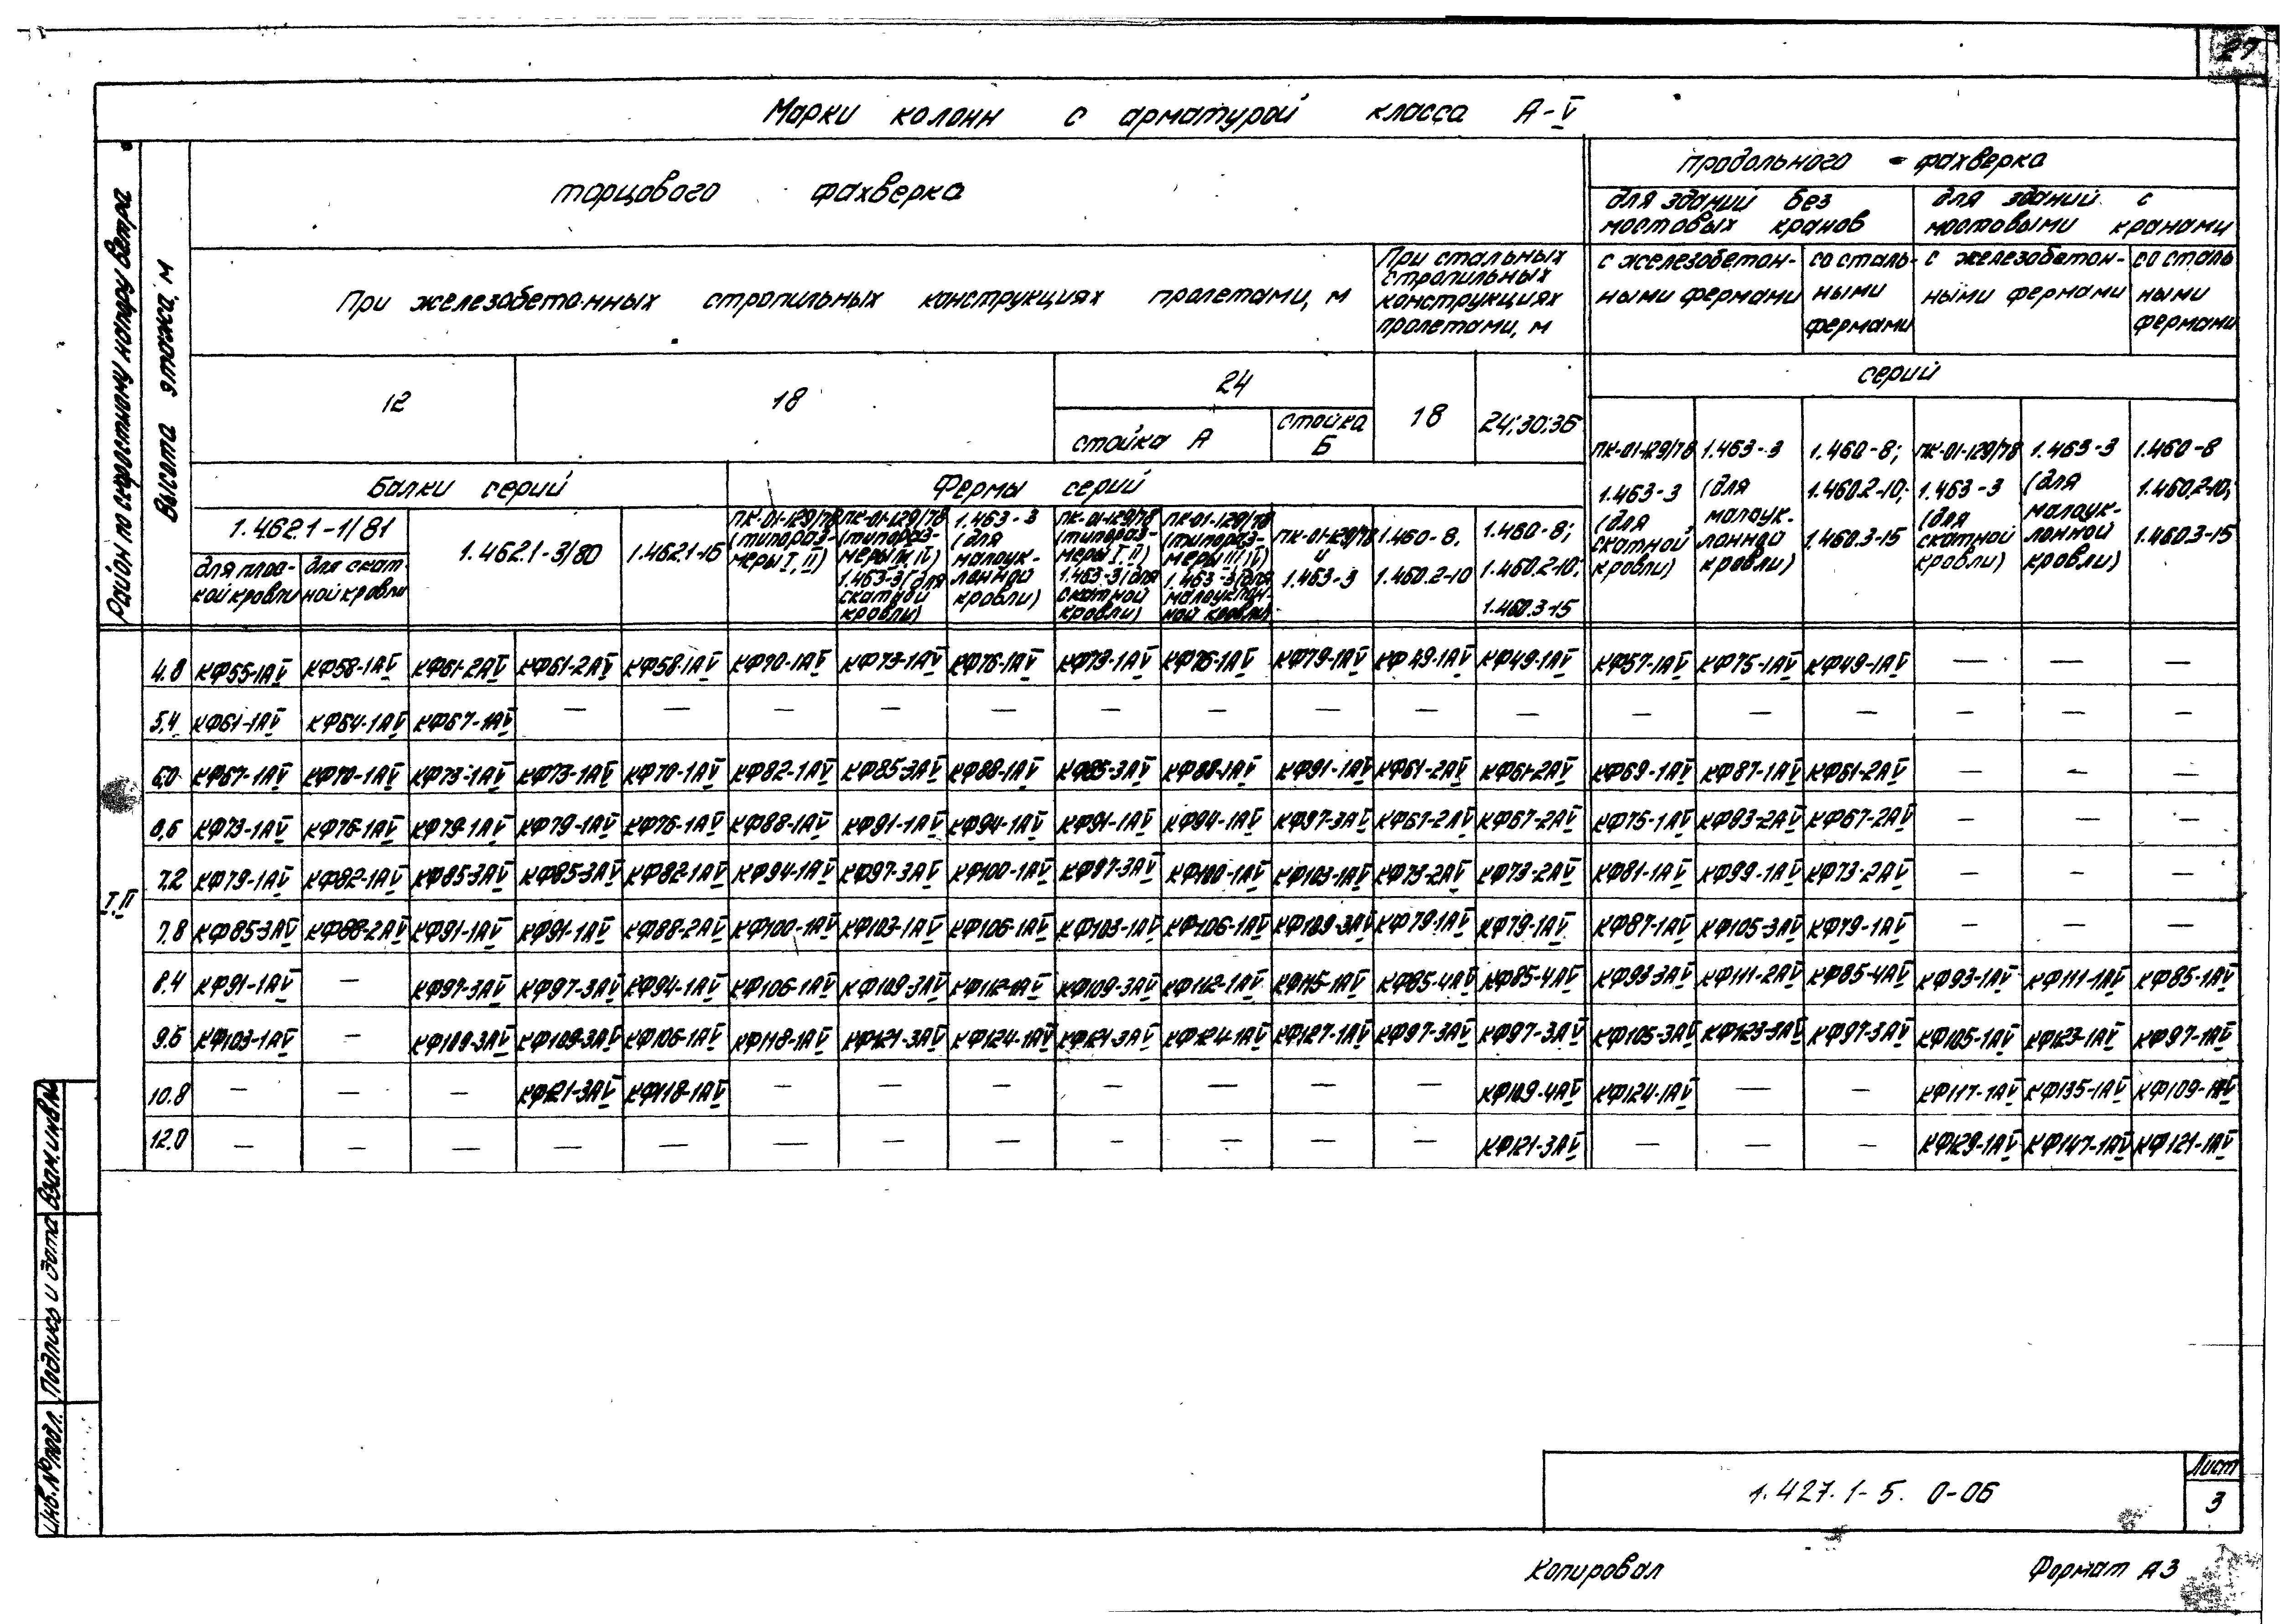 27
Марки колонн с арматурой класса А-V
Район по скоростному напору ветра
Высота этажа, м
торцового фахверка
продольного фахверка
для зданий без мостовых кранов
для зданий с мостовыми кранами
При железобетонных стропильных конструкциях пролетами, м
При стальных стропильных конструкциях пролетами, м
с железобетонными фермами
со стальными фермами
с железобетонными фермами
со стальными фермами
12
18
24
18
24; 30; 36
серий
стойка А
стойка Б
Балки серий
Фермы серий
1.462.1-1/81
для плоской кровли
для скатной кровли
1.462.1-3/80
1.462.1-16
ПК-01-129/78 (типоразмеры I, II)
ПК-01-129/78 (типоразмеры III, IV) 1.463-3 (для скатной кровли)
1.463-3 (для малоуклонной кровли)
ПК-01-129/78 (типоразмеры I, II) 1.463-3 (для скатной кровли)
ПК-01-129/78 (типоразмеры III, IV) 1.463-3 (для малоуклонной кровли)
ПК-01-129/78 и 1.463-3
1.460-8, 1.460.2-10
1.460-8; 1.460.2-10; 1.460.3-15
ПК-01-129/78 1.463-3 (для скатной кровли)
1.463-3 (для малоуклонной кровли)
1.460-8; 1.460.2-10; 1.460.3-15
ПК-01-129/78 1.463-3 (для скатной кровли)
1.463-3 (для малоуклонной кровли)
1.460-8 1.460.2-10; 1.460.3-15
I, II
4.8 КФ55-1АV КФ58-1АV КФ61-2АV КФ61-2АV КФ58-1АV КФ70-1АV КФ73-1АV КФ76-1АV КФ73-1АV КФ76-1АV КФ79-1АV КФ49-1АV КФ49-1АV КФ57-1АV КФ75-1АV КФ49-1АV — — —
5.4 КФ61-1АV КФ64-1АV КФ67-1АV — — — — — — — — — — — — — — — —
6.0 КФ67-1АV КФ70-1АV КФ73-1АV КФ73-1АV КФ70-1АV КФ82-1АV КФ85-3АV КФ88-1АV КФ85-3АV КФ88-1АV КФ91-1АV КФ61-2АV КФ61-2АV КФ69-1АV КФ87-1АV КФ61-2АV — — —
6.6 КФ73-1АV КФ76-1АV КФ79-1АV КФ79-1АV КФ76-1АV КФ88-1АV КФ91-1АV КФ94-1АV КФ91-1АV КФ94-1АV КФ97-3АV КФ67-2АV КФ67-2АV КФ75-1АV КФ93-2АV КФ67-2АV — — —
7.2 КФ79-1АV КФ82-1АV КФ85-3АV КФ85-3АV КФ82-1АV КФ94-1АV КФ97-3АV КФ100-1АV КФ97-3АV КФ100-1АV КФ103-1АV КФ73-2АV КФ73-2АV КФ81-1АV КФ99-1АV КФ73-2АV — — —
7.8 КФ85-3АV КФ88-2АV КФ91-1АV КФ91-1АV КФ88-2АV КФ100-1АV КФ103-1АV КФ106-1АV КФ103-1АV КФ106-1АV КФ109-3АV КФ79-1АV КФ79-1АV КФ87-1АV КФ105-3АV КФ79-1АV — — —
8.4 КФ91-1АV — КФ97-3АV КФ97-3АV КФ94-1АV КФ106-1АV КФ109-3АV КФ112-1АV КФ109-3АV КФ112-1АV КФ115-1АV КФ85-4АV КФ85-4АV КФ93-3АV КФ111-2АV КФ85-4АV КФ93-1АV КФ111-1АV КФ85-1АV
9.6 КФ103-1АV — КФ109-3АV КФ109-3АV КФ106-1АV КФ118-1АV КФ121-3АV КФ124-1АV КФ121-3АV КФ124-1АV КФ127-1АV КФ97-3АV КФ97-3АV КФ105-3АV КФ123-3АV КФ97-3АV КФ105-1АV КФ123-1АV КФ97-1АV
10.8 — — — КФ121-3АV КФ118-1АV — — — — — — — КФ109-4АV КФ124-1АV — — КФ117-1АV КФ135-1АV КФ109-1АV
12.0 — — — — — — — — — — — — КФ121-3АV — — — КФ129-1АV КФ147-1АV КФ121-1АV
Инв. № подл.
Подпись и дата
Взам. инв. №
1.427.1-5. 0-06
Лист
3
Копировал
Формат А3